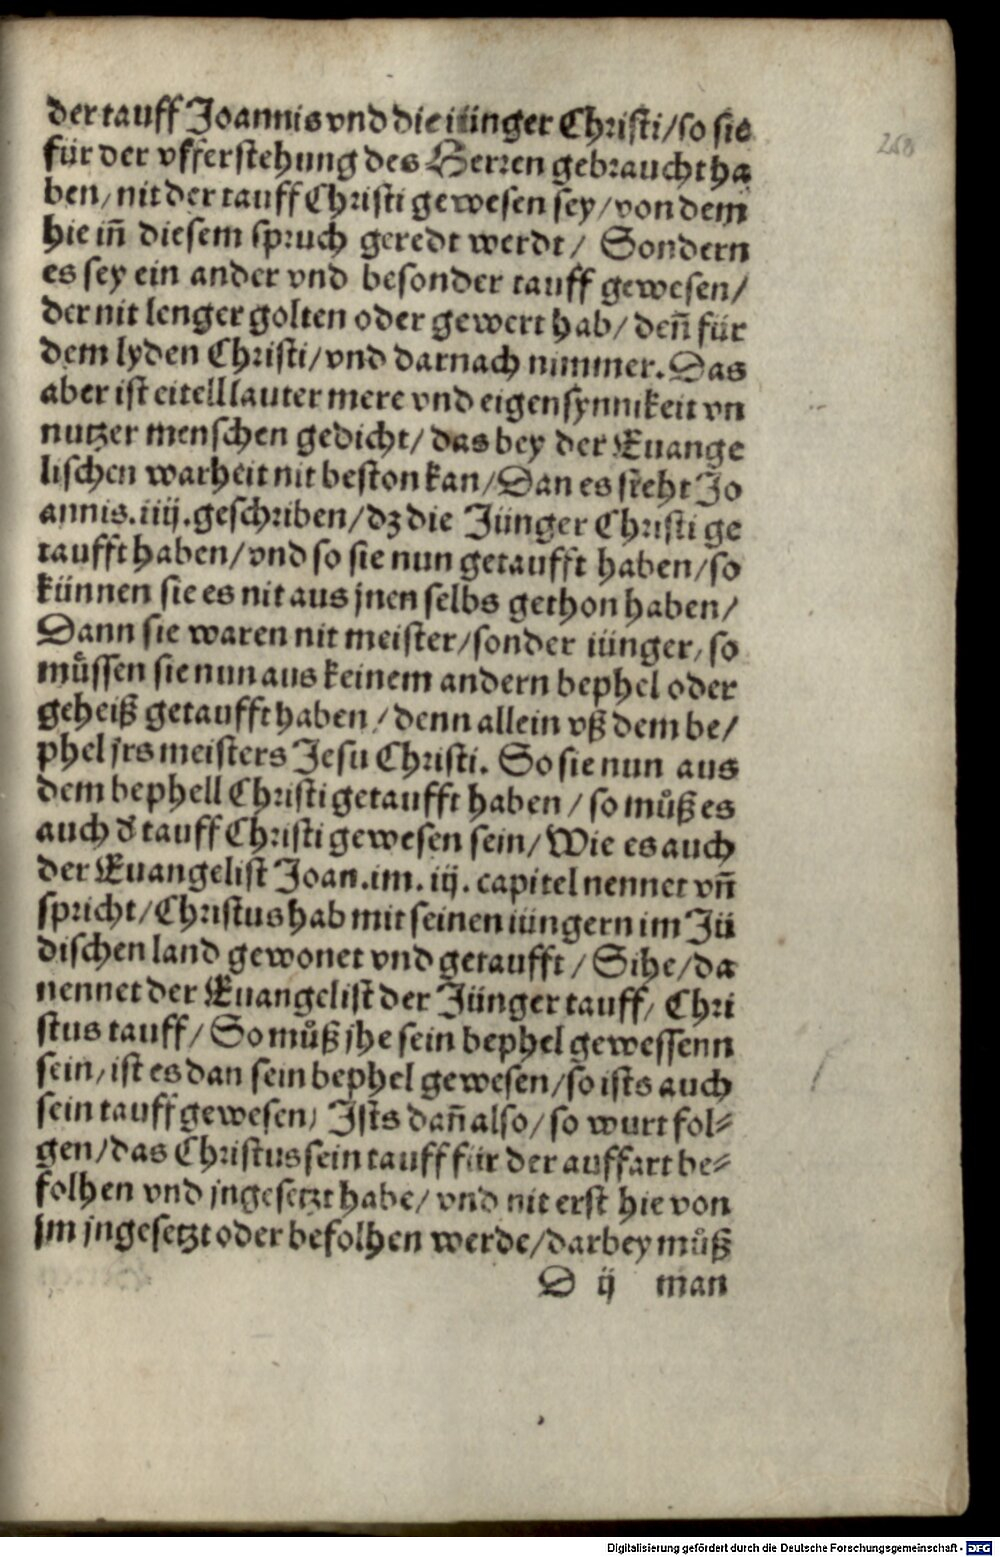 der tauff Joannis vnd die iünger Christi/so sie
für der vfferstehung des Herren gebraucht ha
ben/nit der tauff Christi gewesen sey/von dem
hie in̄ diesem spruch geredt werdt/ Sondern
es sey ein ander vnd besonder tauff gewesen/
der nit lenger golten oder gewert hab/ den̄ für
dem lyden Christi/vnd darnach nimmer. Das
aber ist eitell lauter mere vnd eigensynnikeit vn
nutzer menschen gedicht/ das bey der Euange
lischen warheit nit beston kan/Dan es steht Jo
annis.iiij.geschriben/dz die Jünger Christi ge
taufft haben/vnd so sie nun getaufft haben/so
künnen sie es nit aus jnen selbs gethon haben/
Dann sie waren nit meister/sonder iünger/so
müssen sie nun aus keinem andern bephel oder
geheiß getaufft haben/denn allein vß dem be/
phel jrs meisters Jesu Christi. So sie nun aus
dem bephell Christi getaufft haben/so můß es
auch d̕ tauff Christi gewesen sein/Wie es auch
der Euangelist Joan.im.iij.capitel nennet vn̄
spricht/Christus hab mit seinen iüngern im Jü
dischen land gewonet vnd getaufft/Sihe/da
nennet der Euangelist der Jünger tauff/ Chri
stus tauff/So můß jhe sein bephel gewessenn
sein/ist es dan sein bephel gewesen/so ists auch
sein tauff gewesen/ Jsts dan̄ also/so wurt fol⸗
gen/das Christus sein tauff für der auffart be⸗
folhen vnd jngesetzt habe/vnd nit erst hie von
jm jngesetzt oder befolhen werde/darbey můß
D ij man
260
Digitalisierung gefördert durch die Deutsche Forschungsgemeinschaft - DFG